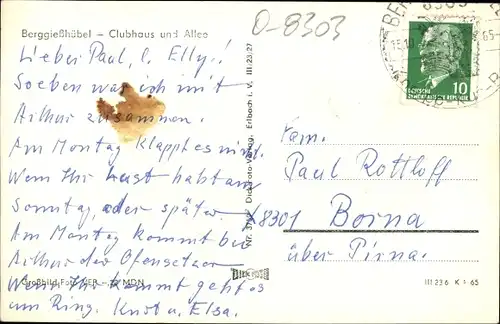 Berggießhübel – Clubhaus und Allee
O-8303
Lieber Paul, l. Elly!
Soeben war ich mit
Arthur zusammen.
Am Montag klappt es nicht.
Wenn Ihr Lust habt am
Sonntag oder später.
Am Montag kommt bei
Arthur der Ofensetzer
Wenn Ihr kommt geht es
am Ring. Knut u. Elsa.
Großbild Foto MDN
Erlbach i. V. III.23.27
DEUTSCHE
DEMOKRATISCHE REPUBLIK
10
Fam.
Paul Rottloff
8301 Borna
über Pirna.
III 23 6 K 65